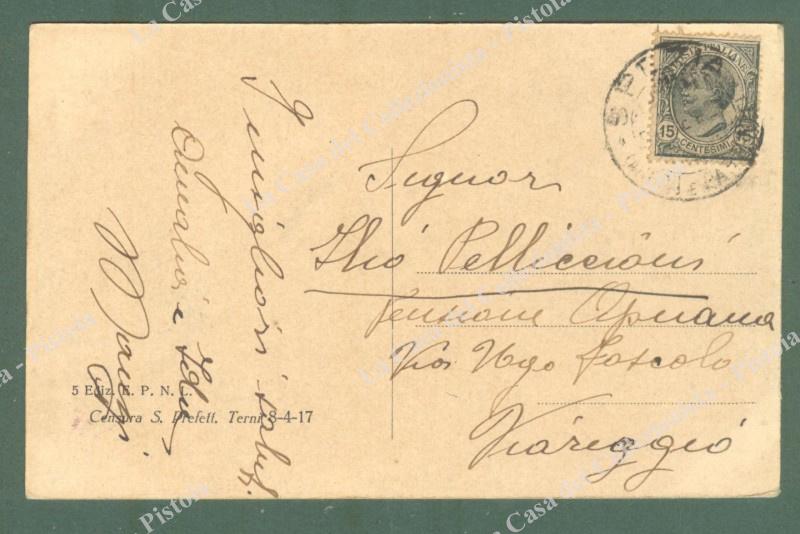 I migliori saluti
Signor
Ilió Pelliccioni
Pensione Apuana
Via Ugo Foscolo
Viareggio
5 Ediz. E. P. N. L.
Censura S. Prefett. Terni 8-4-17
SPEZIA
POSTE ITALIANE
15
CENTESIMI
La Casa del Collezionista - Pistoia